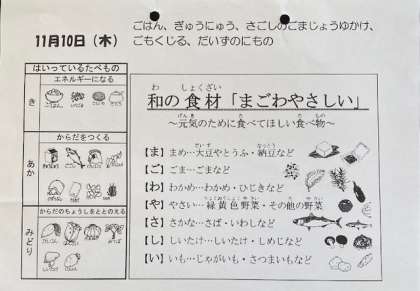 11月10日（木）
ごはん、ぎゅうにゅう、さごしのごまじょうゆかけ、
ごもくじる、だいずのにもの
はいっているたべもの
エネルギーになる
き
ごはん
からだをつくる
あか
からだのちょうしをととのえる
みどり
わ しょくざい
和の食材「まごわやさしい」
げんき た た もの
～元気のために食べてほしい食べ物～
だいず なっとう
【ま】まめ…大豆やとうふ・納豆など
【ご】ごま…ごまなど
【わ】わかめ…わかめ・ひじきなど
りょくおうしょくやさい た やさい
【や】やさい…緑黄色野菜・その他の野菜
【さ】さかな…さば・いわしなど
【し】しいたけ…しいたけ・しめじなど
【い】いも…じゃがいも・さつまいもなど